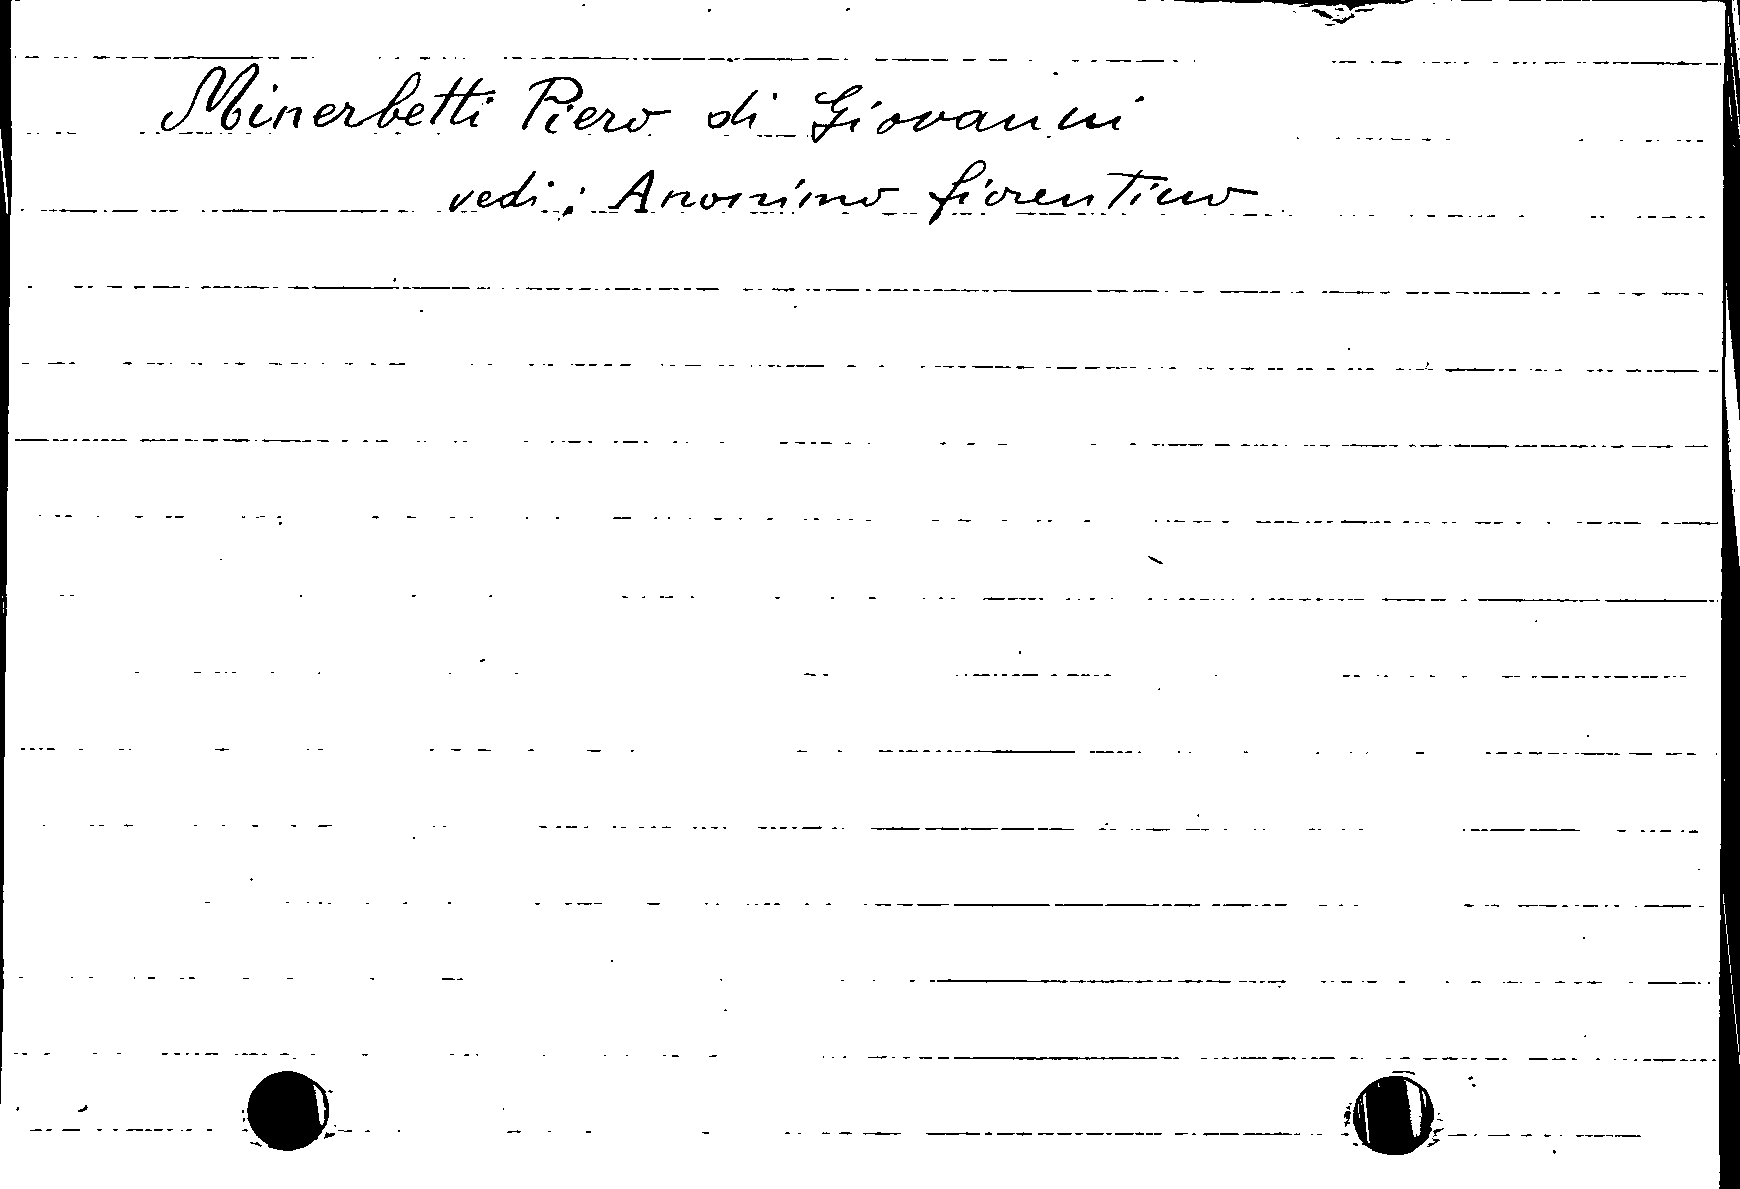 Minerbetti Piero di Giovanni
vedi: Anonimo fiorentino